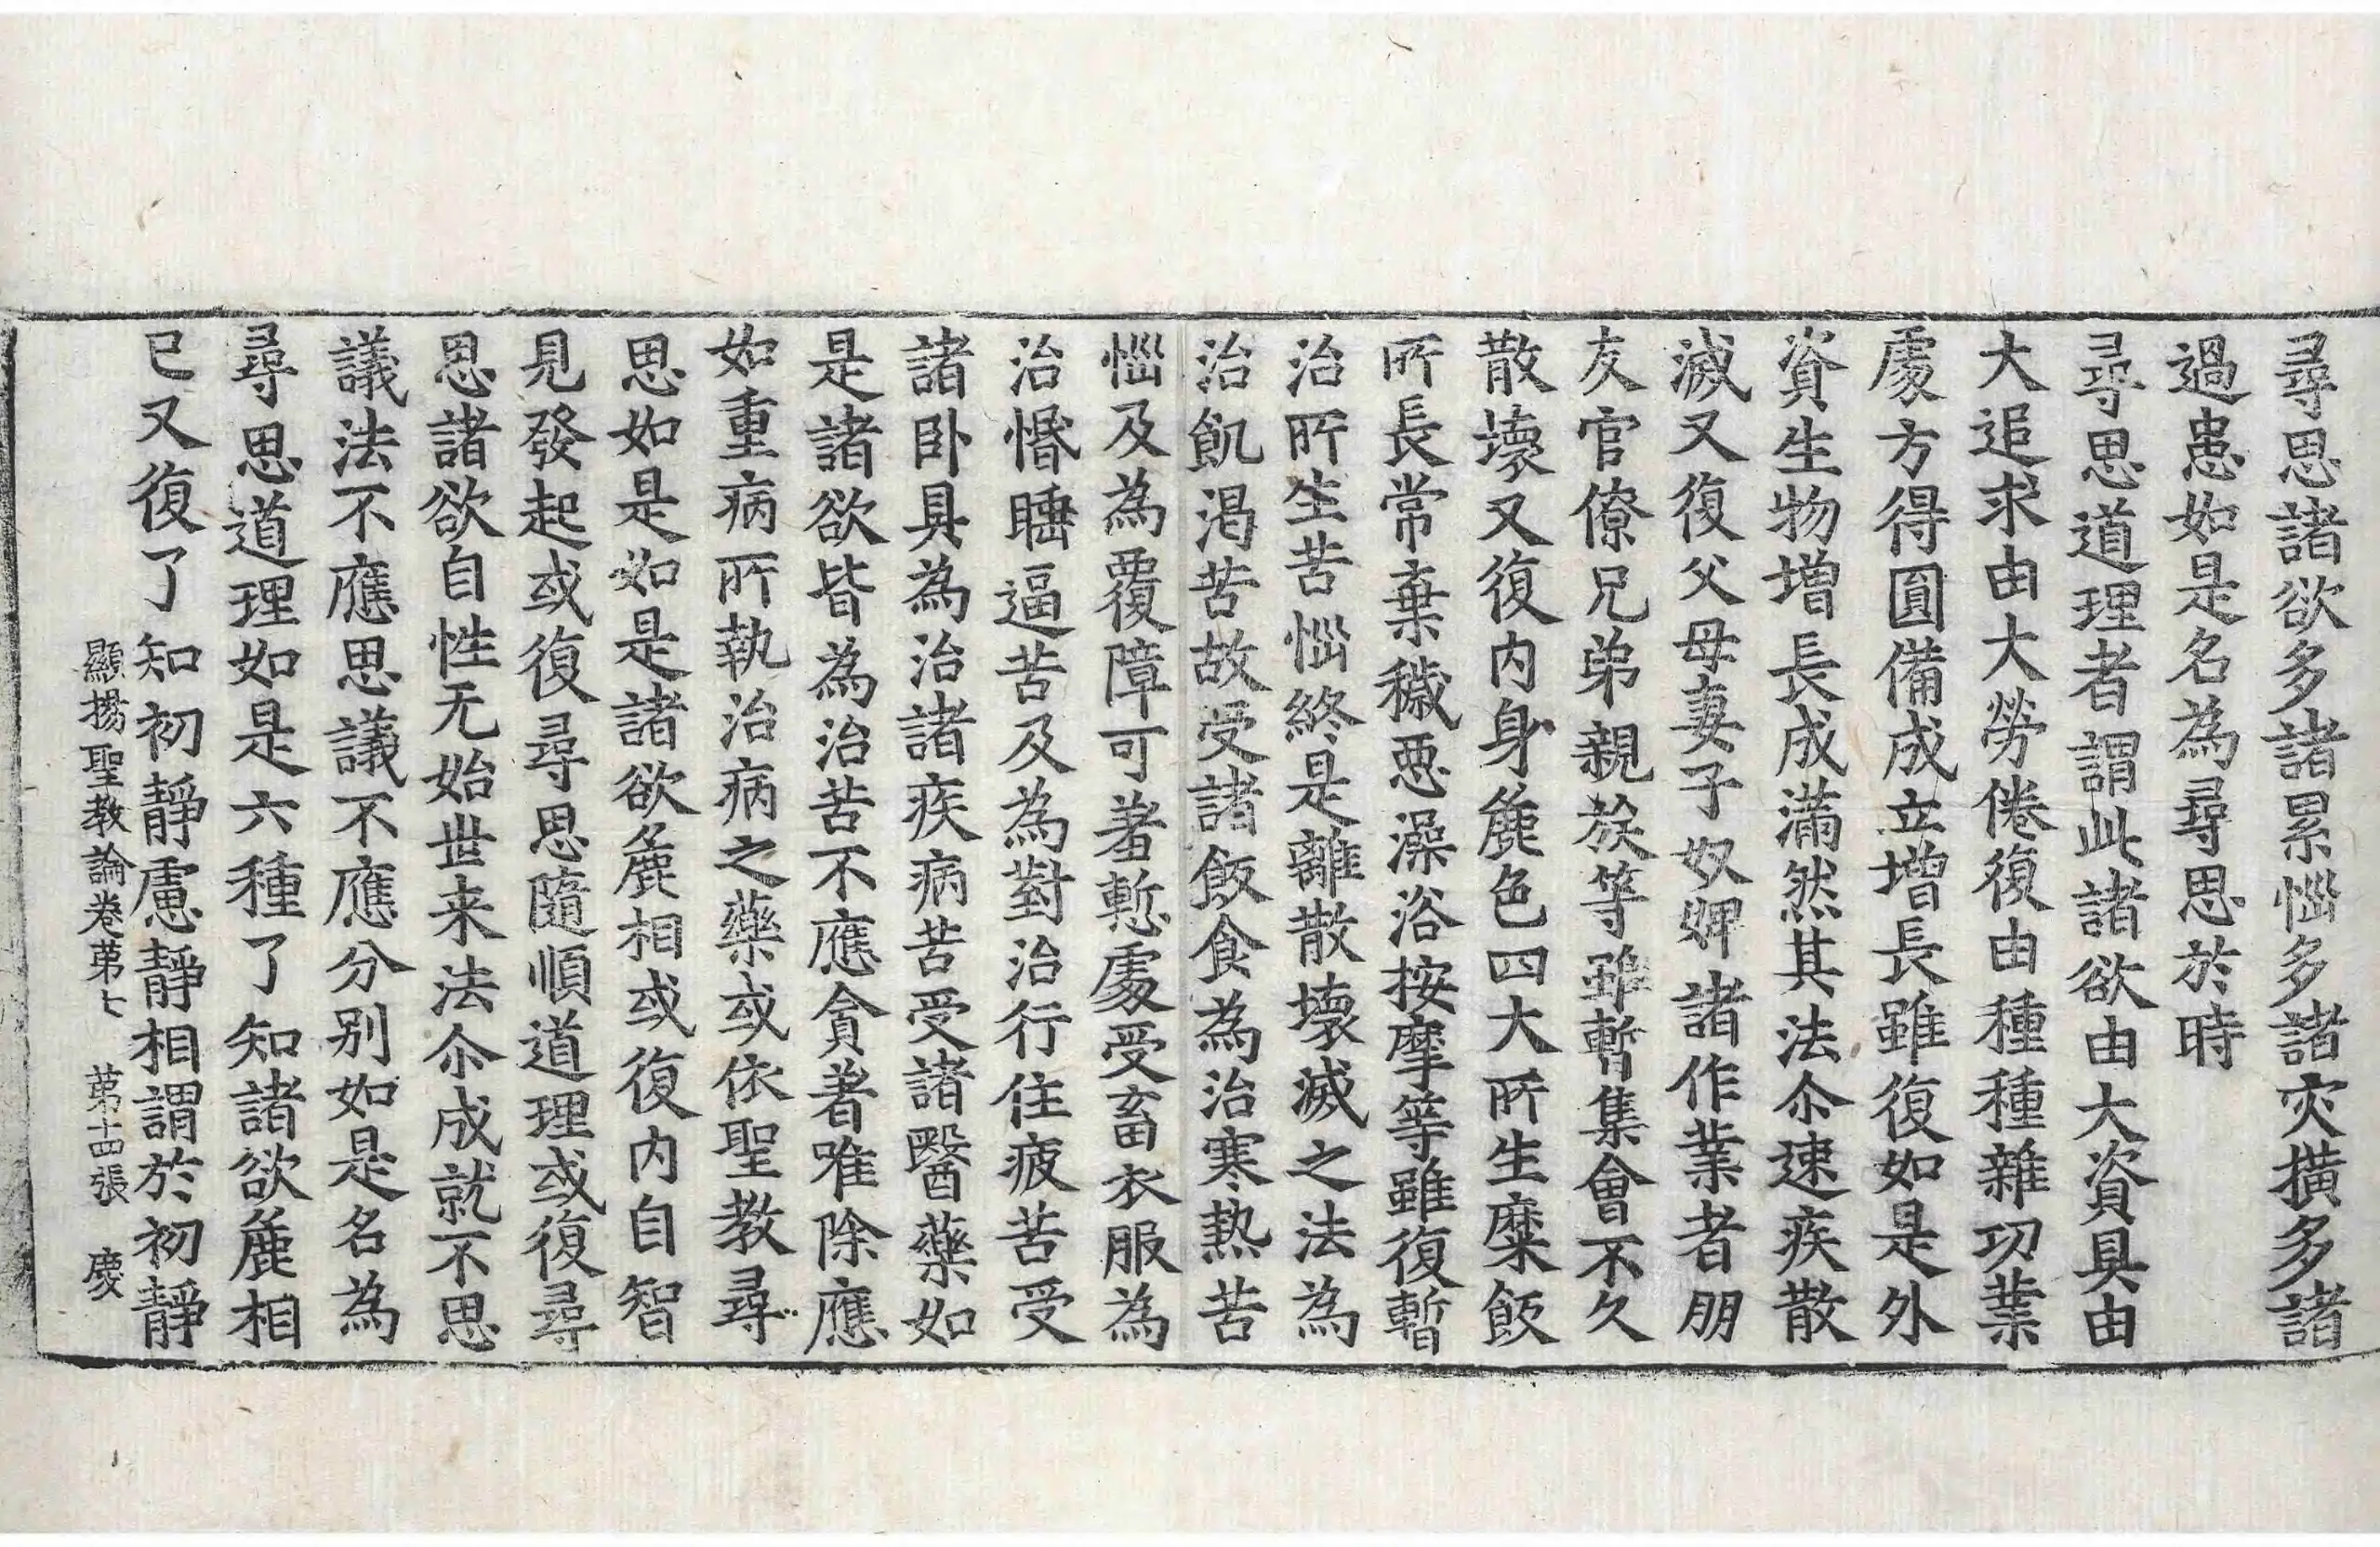 尋思諸欲多諸累惱多諸灾撗多諸
過患如是名為尋思於時
尋思道理者謂此諸欲由大資具由
大追求由大勞倦復由種種雜功業
處方得圓備成立增長雖復如是外
資生物增長成滿然其法尒速疾散
滅又復父母妻子奴婢諸作業者朋
友官僚兄弟親族等雖暫集會不久
散壞又復內身麁色四大所生糜飯
所長常棄穢惡澡浴按摩等雖復暫
治所生苦惱終是離散壞滅之法為
治飢渴苦故受諸飯食為治寒熱苦
惱及為覆障可羞慙處受畜衣服為
治惛睡逼苦及為對治行住疲苦受
諸卧具為治諸疾病苦受諸醫藥如
是諸欲皆為治苦不應貪著唯除應
如重病所執治病之藥或依聖教尋
思如是如是諸欲麁相或復內自智
見發起或復尋思隨順道理或復尋
思諸欲自性无始世来法尒成就不思
議法不應思議不應分别如是名為
尋思道理如是六種了知諸欲麁相
已又復了知初靜慮靜相謂於初靜
顯揚聖教論卷第七 第十四張 慶